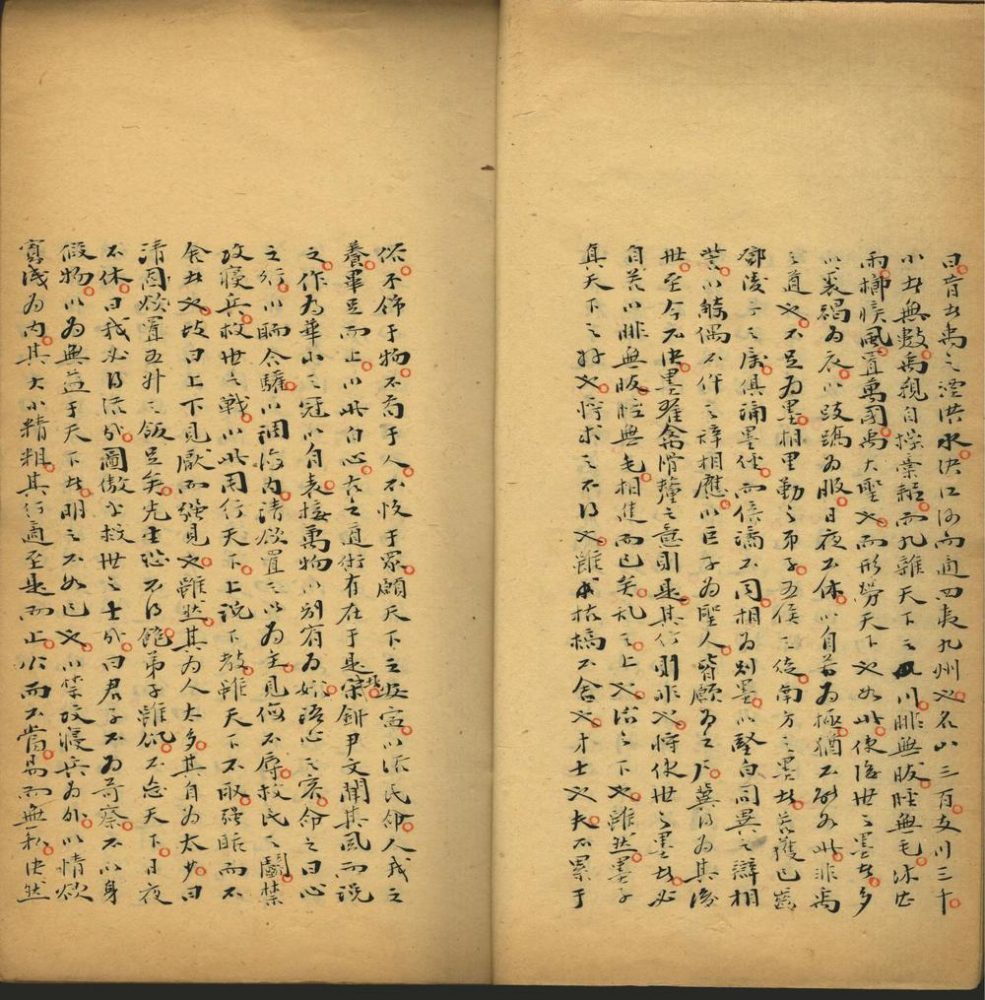 曰昔者禹之湮洪水決江河而通四夷九州也名川三百支川三千
小者無數禹親自操橐耜而九雜天下之川腓無胈脛無毛沐甚
雨櫛疾風置萬國禹大聖也而形勞天下也如此使後世之墨者多
以裘褐為衣以跂蹻為服日夜不休以自苦為極猶不能如此非禹
之道也不足為墨相里勤之弟子五侯之徒南方之墨者苦獲已齒
鄧陵子之屬俱誦墨經而倍譎不同相為別墨以堅白同異之辯相
訾以觭偶不仵之辭相應以巨子為聖人皆願為之尸冀得為其後
世至今不決墨翟禽滑釐之意則是其行則非也將使世之墨者必
自苦以腓無胈脛無毛相進而已矣亂之上也治之下也雖然墨子
真天下之好也將求之不得也雖枯槁不舍也才士也夫不累于
俗不飾于物不苟于人不忮于眾願天下之安寧以活民命人我之
養畢足而止以此白心古之道術有在于是者宋鈃尹文聞其風而說
之作為華山之冠以自表接萬物以別宥為始語心之容命之曰心
之行以聏合驩以調海內請欲置之以為主見侮不辱救民之鬬禁
攻寢兵救世之戰以此周行天下上說下教雖天下不取强聒而不
舍者也故曰上下見厭而强見也雖然其為人太多其自為太少曰
請固欲置五升之飯足矣先生恐不得飽弟子雖飢不忘天下日夜
不休曰我必得活哉圖傲乎救世之士哉曰君子不為苛察不以身
假物以為無益于天下者明之不如已也以禁攻寢兵為外以情欲
寡淺為內其大小精粗其行適至是而止公而不當易而無私決然